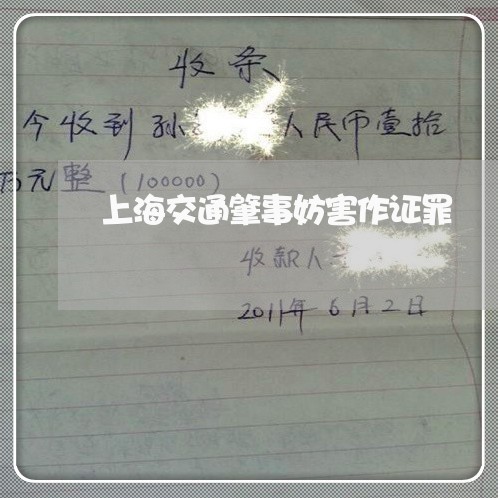 收条
今收到孙 人民币壹拾
万元整(100000)
上海交通肇事妨害作证罪
收款人
2011年6月2日